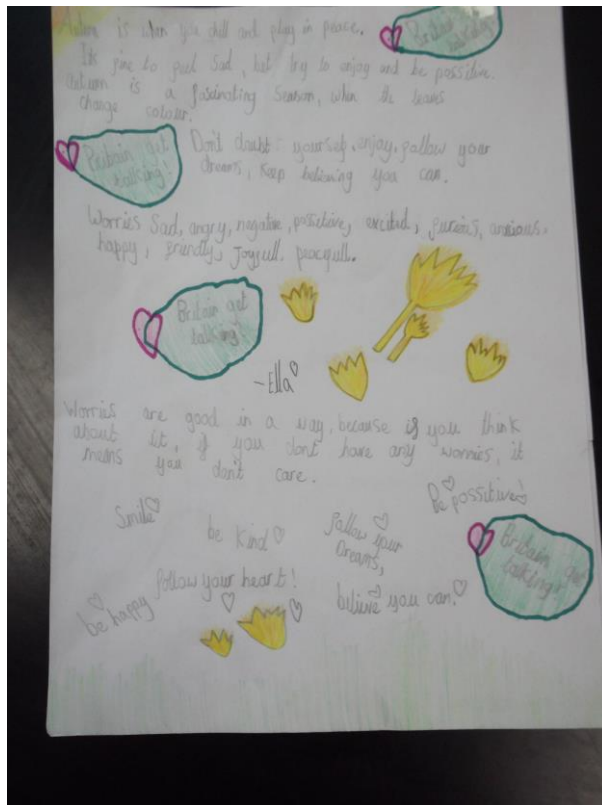 Autumn is when you chill and play in peace.
Britain get
talking!
It's fine to feel sad, but try to enjoy and be possitive.
Autumn is a fascinating season, when the leaves
change colour.
Britain get
talking!
Don't doubt yourself, enjoy, follow your
dreams, keep believing you can.
Worries Sad, angry, negative, possitive, excited, furious, anxious,
happy, friendly, Joyfull, peacefull.
Britain get
talking!
-Ella
Worries are good in a way, because if you think
about it, if you dont have any worries, it
means you don't care.
Be possitive!
Smile
be kind
follow your
Dreams,
Britain get
talking!
follow your heart!
be happy
believe you can.